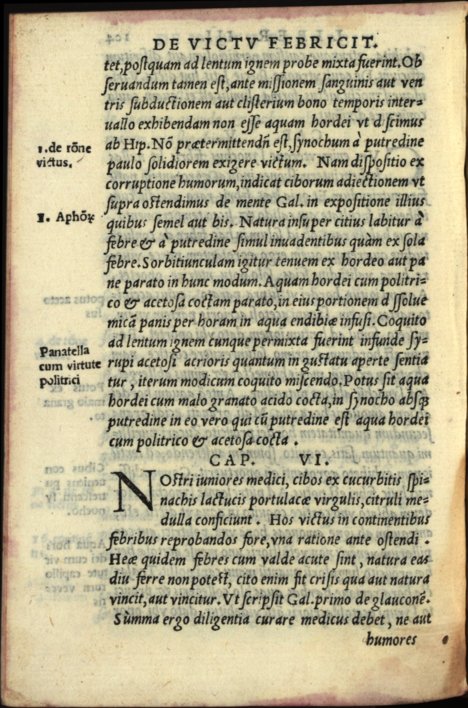 DE VICTV FEBRICIT.
tet, postquam ad lentum ignem probe mixta fuerint. Ob
seruandum tamen est, ante missionem sanguinis aut ven
tris subductionem aut clisterium bono temporis inter-
uallo exhibendam non esse aquam hordei vt discimus
1. de rōne
victus.
ab Hip. Nō prætermittendū est, synochum à putredine
paulo solidiorem exigere victum. Nam dispositio ex
corruptione humorum, indicat ciborum adiectionem vt
supra ostendimus de mente Gal. in expositione illius
1. Aphoꝝ
quibus semel aut bis. Natura insuper citius labitur à
febre & à putredine simul inuadentibus quàm ex sola
febre. Sorbitiunculam igitur tenuem ex hordeo aut pa
ne parato in hunc modum. Aquam hordei cum politri-
co & acetosa coctam parato, in eius portionem dissolue
micā panis per horam in aqua endibiæ infusi. Coquito
Panatella
cum virtute
politrici
ad lentum ignem cunque permixta fuerint infunde sy-
rupi acetosi acrioris quantum in gustatu aperte sentia
tur, iterum modicum coquito miscendo. Potus sit aqua
hordei cum malo granato acido cocta, in synocho absqꝫ
putredine in eo vero qui cū putredine est aqua hordei
cum politrico & acetosa cocta.
CAP. VI.
NOstri iuniores medici, cibos ex cucurbitis spi-
nachis lactucis portulacæ virgulis, citruli me-
dulla conficiunt. Hos victus in continentibus
febribus reprobandos fore, vna ratione ante ostendi.
Heæ quidem febres cum valde acute sint, natura eas
diu ferre non potest, cito enim fit crisis qua aut natura
vincit, aut vincitur. Vt scripsit Gal. primo de glauconē.
Summa ergo diligentia curare medicus debet, ne aut
humores